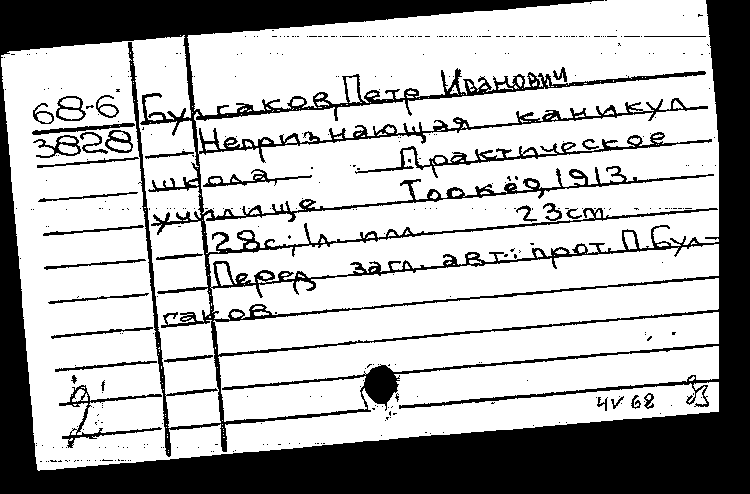 68-6 Булгаков, Петр Иванович
3828 Непризнающая каникул
школа. Практическое
училище. Тоокёо, 1913.
28с.; 1л. илл. 23см
Перед загл. авт.: прот. П. Бул-
гаков.
4V 68